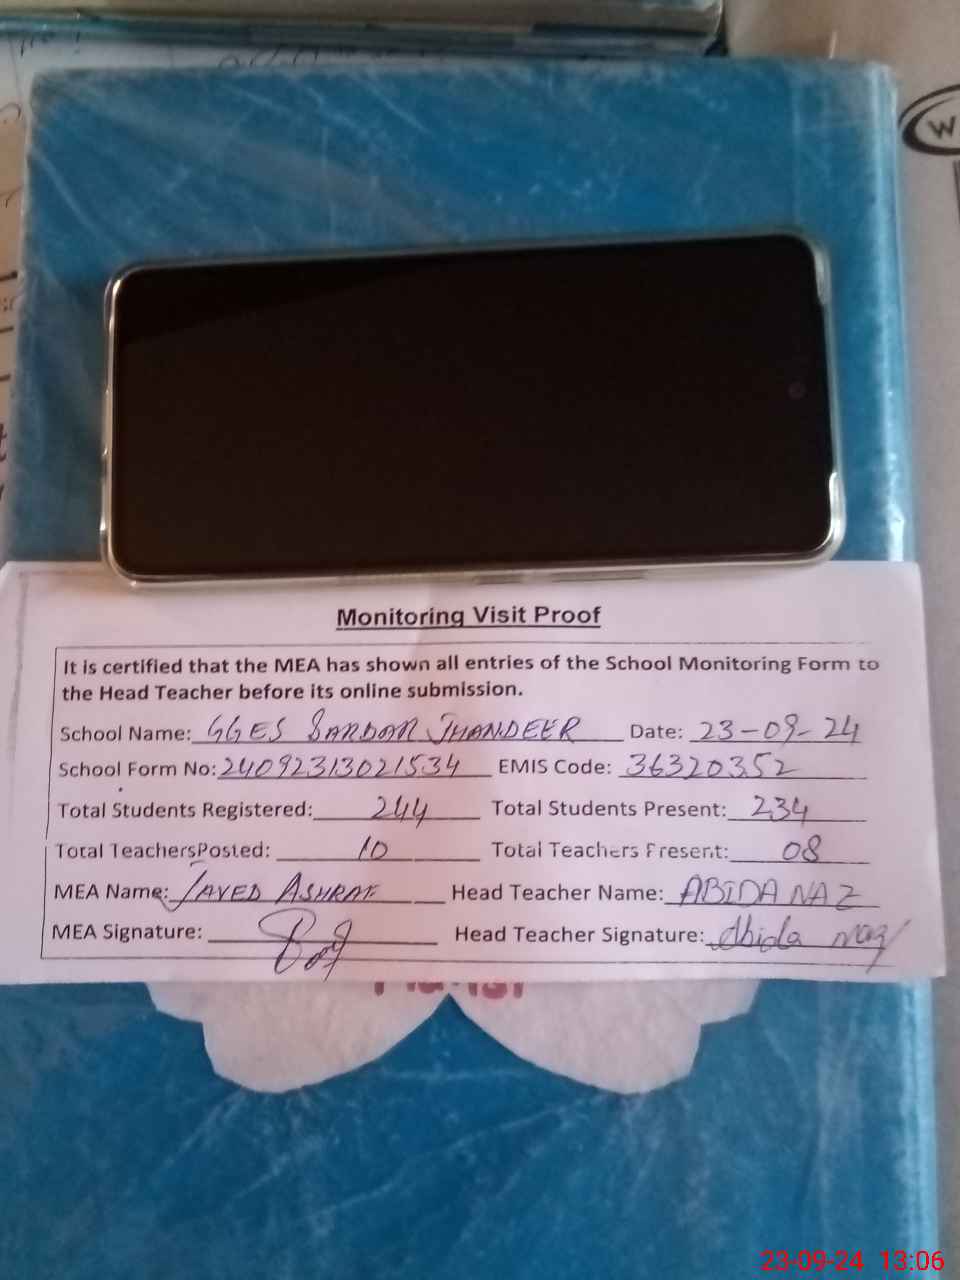 W
Monitoring Visit Proof
It is certified that the MEA has shown all entries of the School Monitoring Form to
the Head Teacher before its online submission.
School Name: GGES SARDAR JHANDEER Date: 23-09-24
School Form No: 24092313021534 EMIS Code: 36320352
Total Students Registered: 244 Total Students Present: 234
Total TeachersPosted: 10 Total Teachers Present: 08
MEA Name: JAVED ASHRAF Head Teacher Name: ABIDA NAZ
MEA Signature: Head Teacher Signature: Abida naz
23-09-24 13:06